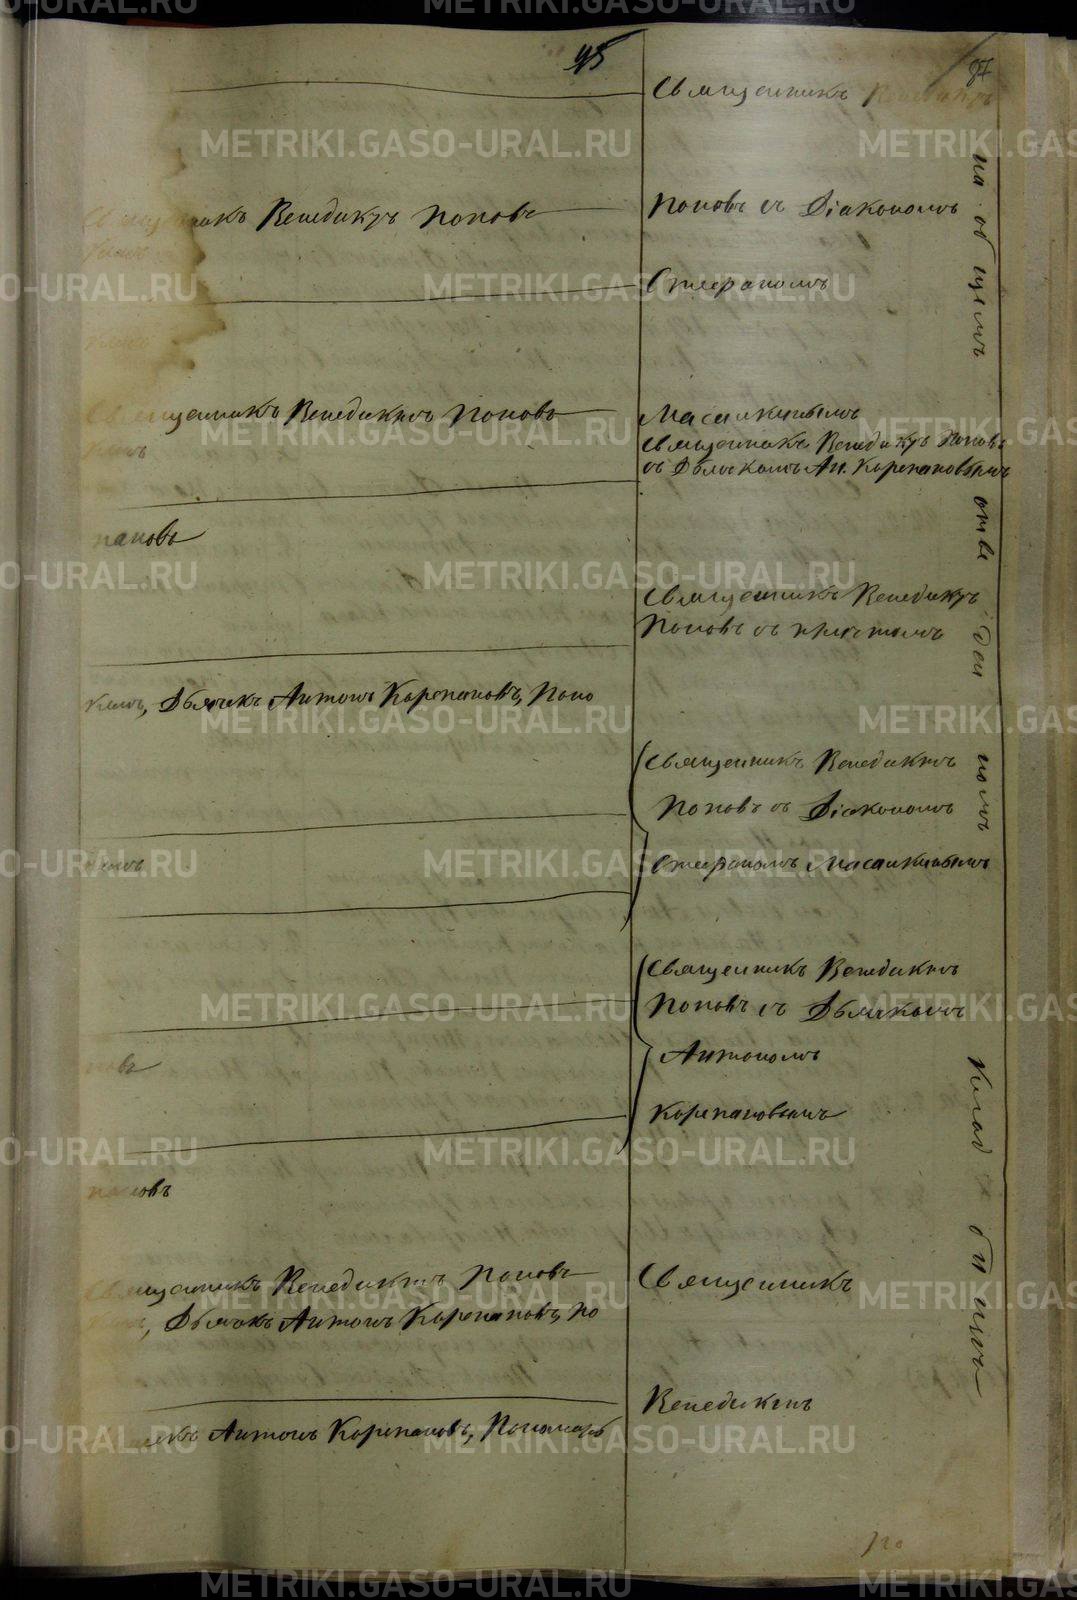 95
87
Священникъ Венедиктъ
Священникъ Венедиктъ Поповъ
Поповъ съ Діакономъ
Стефаномъ
Священникъ Венедиктъ Поповъ
Масалкинымъ
Священникъ Венедиктъ Поповъ
съ Дьячкомъ Ан. Корепановымъ
пановъ
Священникъ Венедиктъ
Поповъ съ причтомъ
комъ, Дьячекъ Антонъ Корепановъ, Поно
Священникъ Венедиктъ
Поповъ съ Діакономъ
Стефаномъ Масалкинымъ
Священникъ Венедиктъ
Поповъ съ Дьячкомъ
Антономъ
Корепановымъ
новъ
пановъ
Священникъ Венедиктъ Поповъ
Дьячокъ Антонъ Корепановъ, по
Священникъ
Венедиктъ
Антонъ Корепановъ, Пономарь
по
на общемъ отве деи номъ клад бищѣ
METRIKI.GASO-URAL.RU